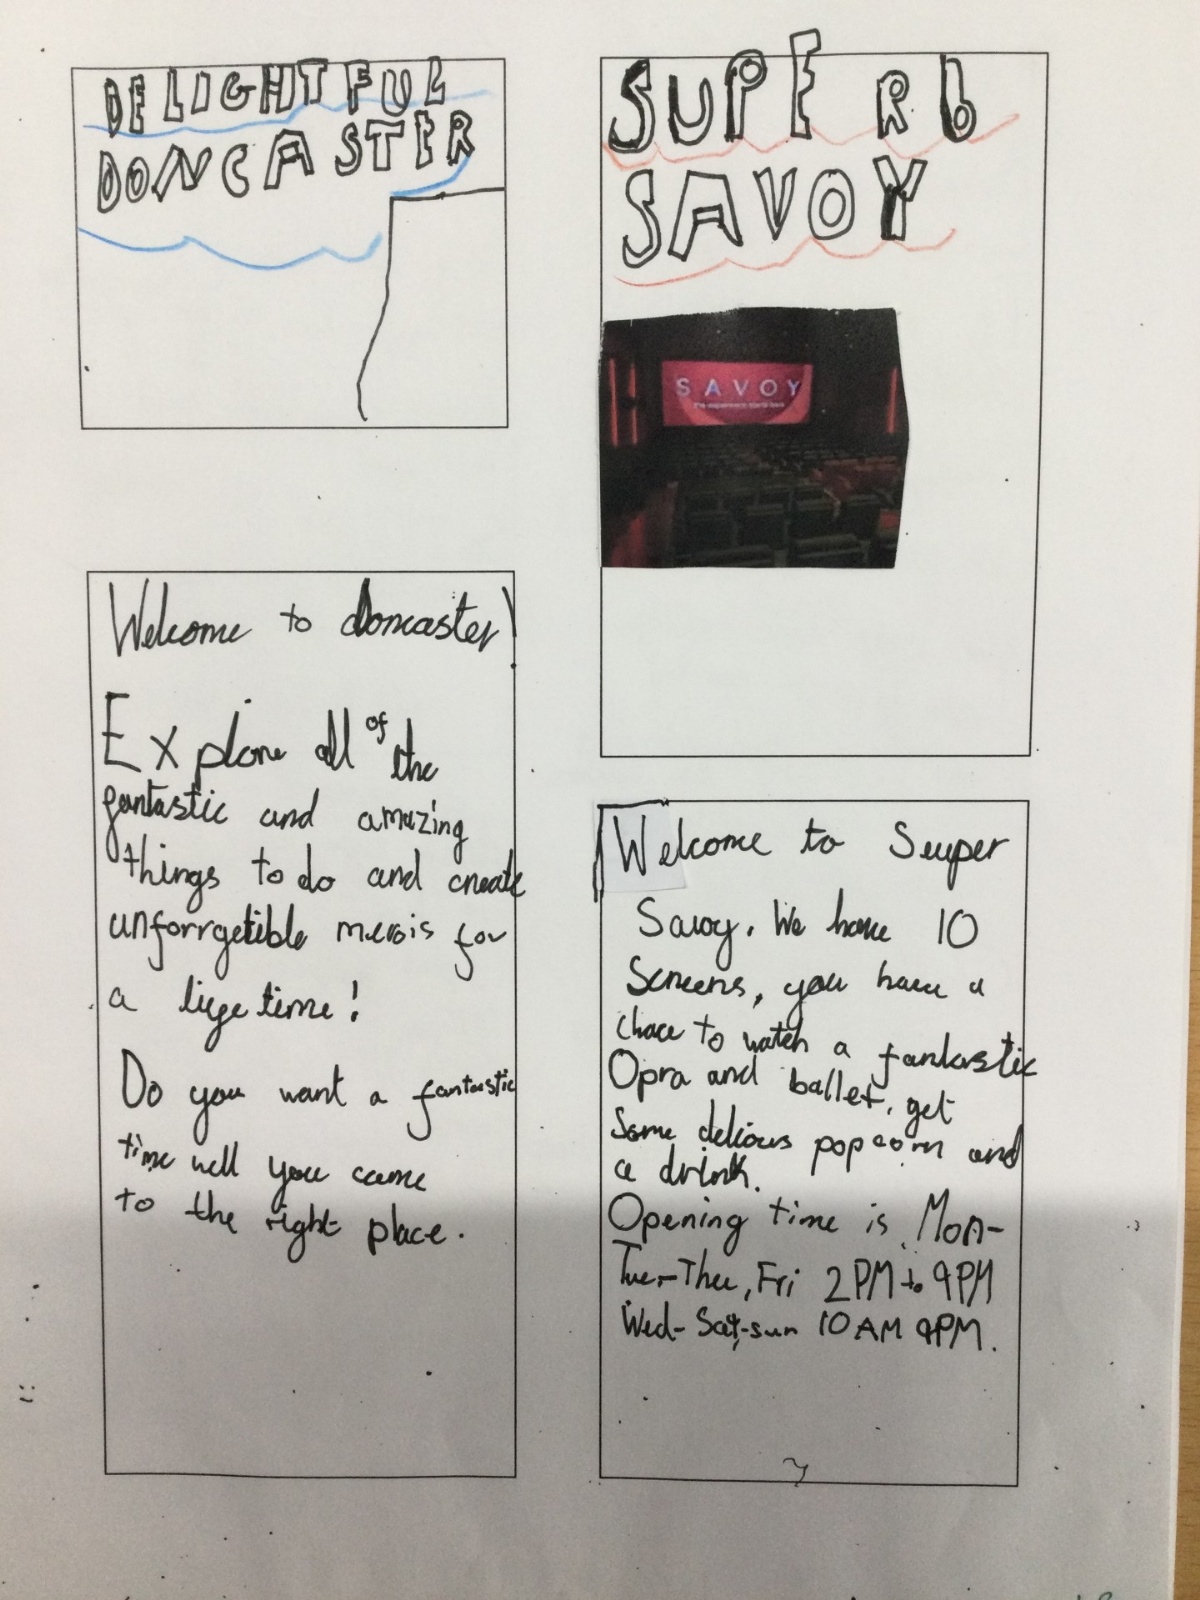 DELIGHTFUL
DONCASTER
Welcome to doncaster!
Explore all of the
fantastic and amazing
things to do and create
unforrgetible merois for
a life time!
Do you want a fantastic
time well you came
to the right place.
SUPERb
SAVOY
SAVOY
Welcome to Seuper
Savoy. We have 10
Screens, you have a
chace to watch a fantastic
Opra and ballet, get
Some delious popcorn and
a drink.
Opening time is Mon-
Tue-Thu, Fri 2PM to 9PM
Wed- Sat-sun 10AM 9PM.